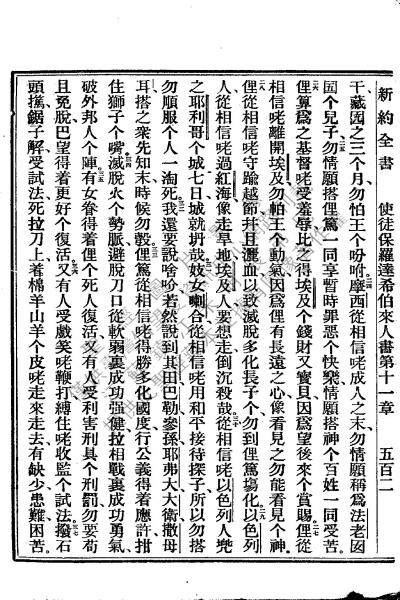 新約全書　使徒保羅達希伯來人書第十一章　五百二
干藏囥之三个月勿怕王个吩咐摩西從相信咾成人之末勿情願稱爲法老囡
囡个兒子勿情願搭俚篤一同享暫時罪惡个快樂情願搭神个百姓一同受苦
俚算爲之基督咾受羞辱比之得埃及个錢財又寶貝因爲望後來个賞賜俚從
相信咾離開埃及勿怕王个動氣因爲俚有長遠之心像看見之勿能看見个神
俚從相信咾守踰越節幷且灑血以致滅脫多化長子个勿到俚篤塲化以色列
人從相信咾過紅海像走旱地埃及人要想走倒沉殺哉從相信咾以色列人兠
之耶利哥个城七日城就坍哉妓女喇合從相信咾用和平接待探子所以勿搭
勿順服个人一淘死我還要說啥吤若然說到其田巴勒參孫耶弗大大衛撒母
耳搭之衆先知末時候勿彀俚篤從相信咾得勝多化國度行公義得着應許拑
住獅子个嘴滅脫火个勢脈避脫刀口從軟弱裏成功强健拉相戰裏成功勇氣
破外邦人个陣有女眷得着俚个死人復活又有人受利害刑具个刑罰勿要苟
且免脫巴望得着更好个復活又有人受戲笑咾鞭打縛住咾收監个試法撥石
頭鋸子解受試法死拉刀上着綿羊山羊个皮咾走來走去有缺少患難困苦